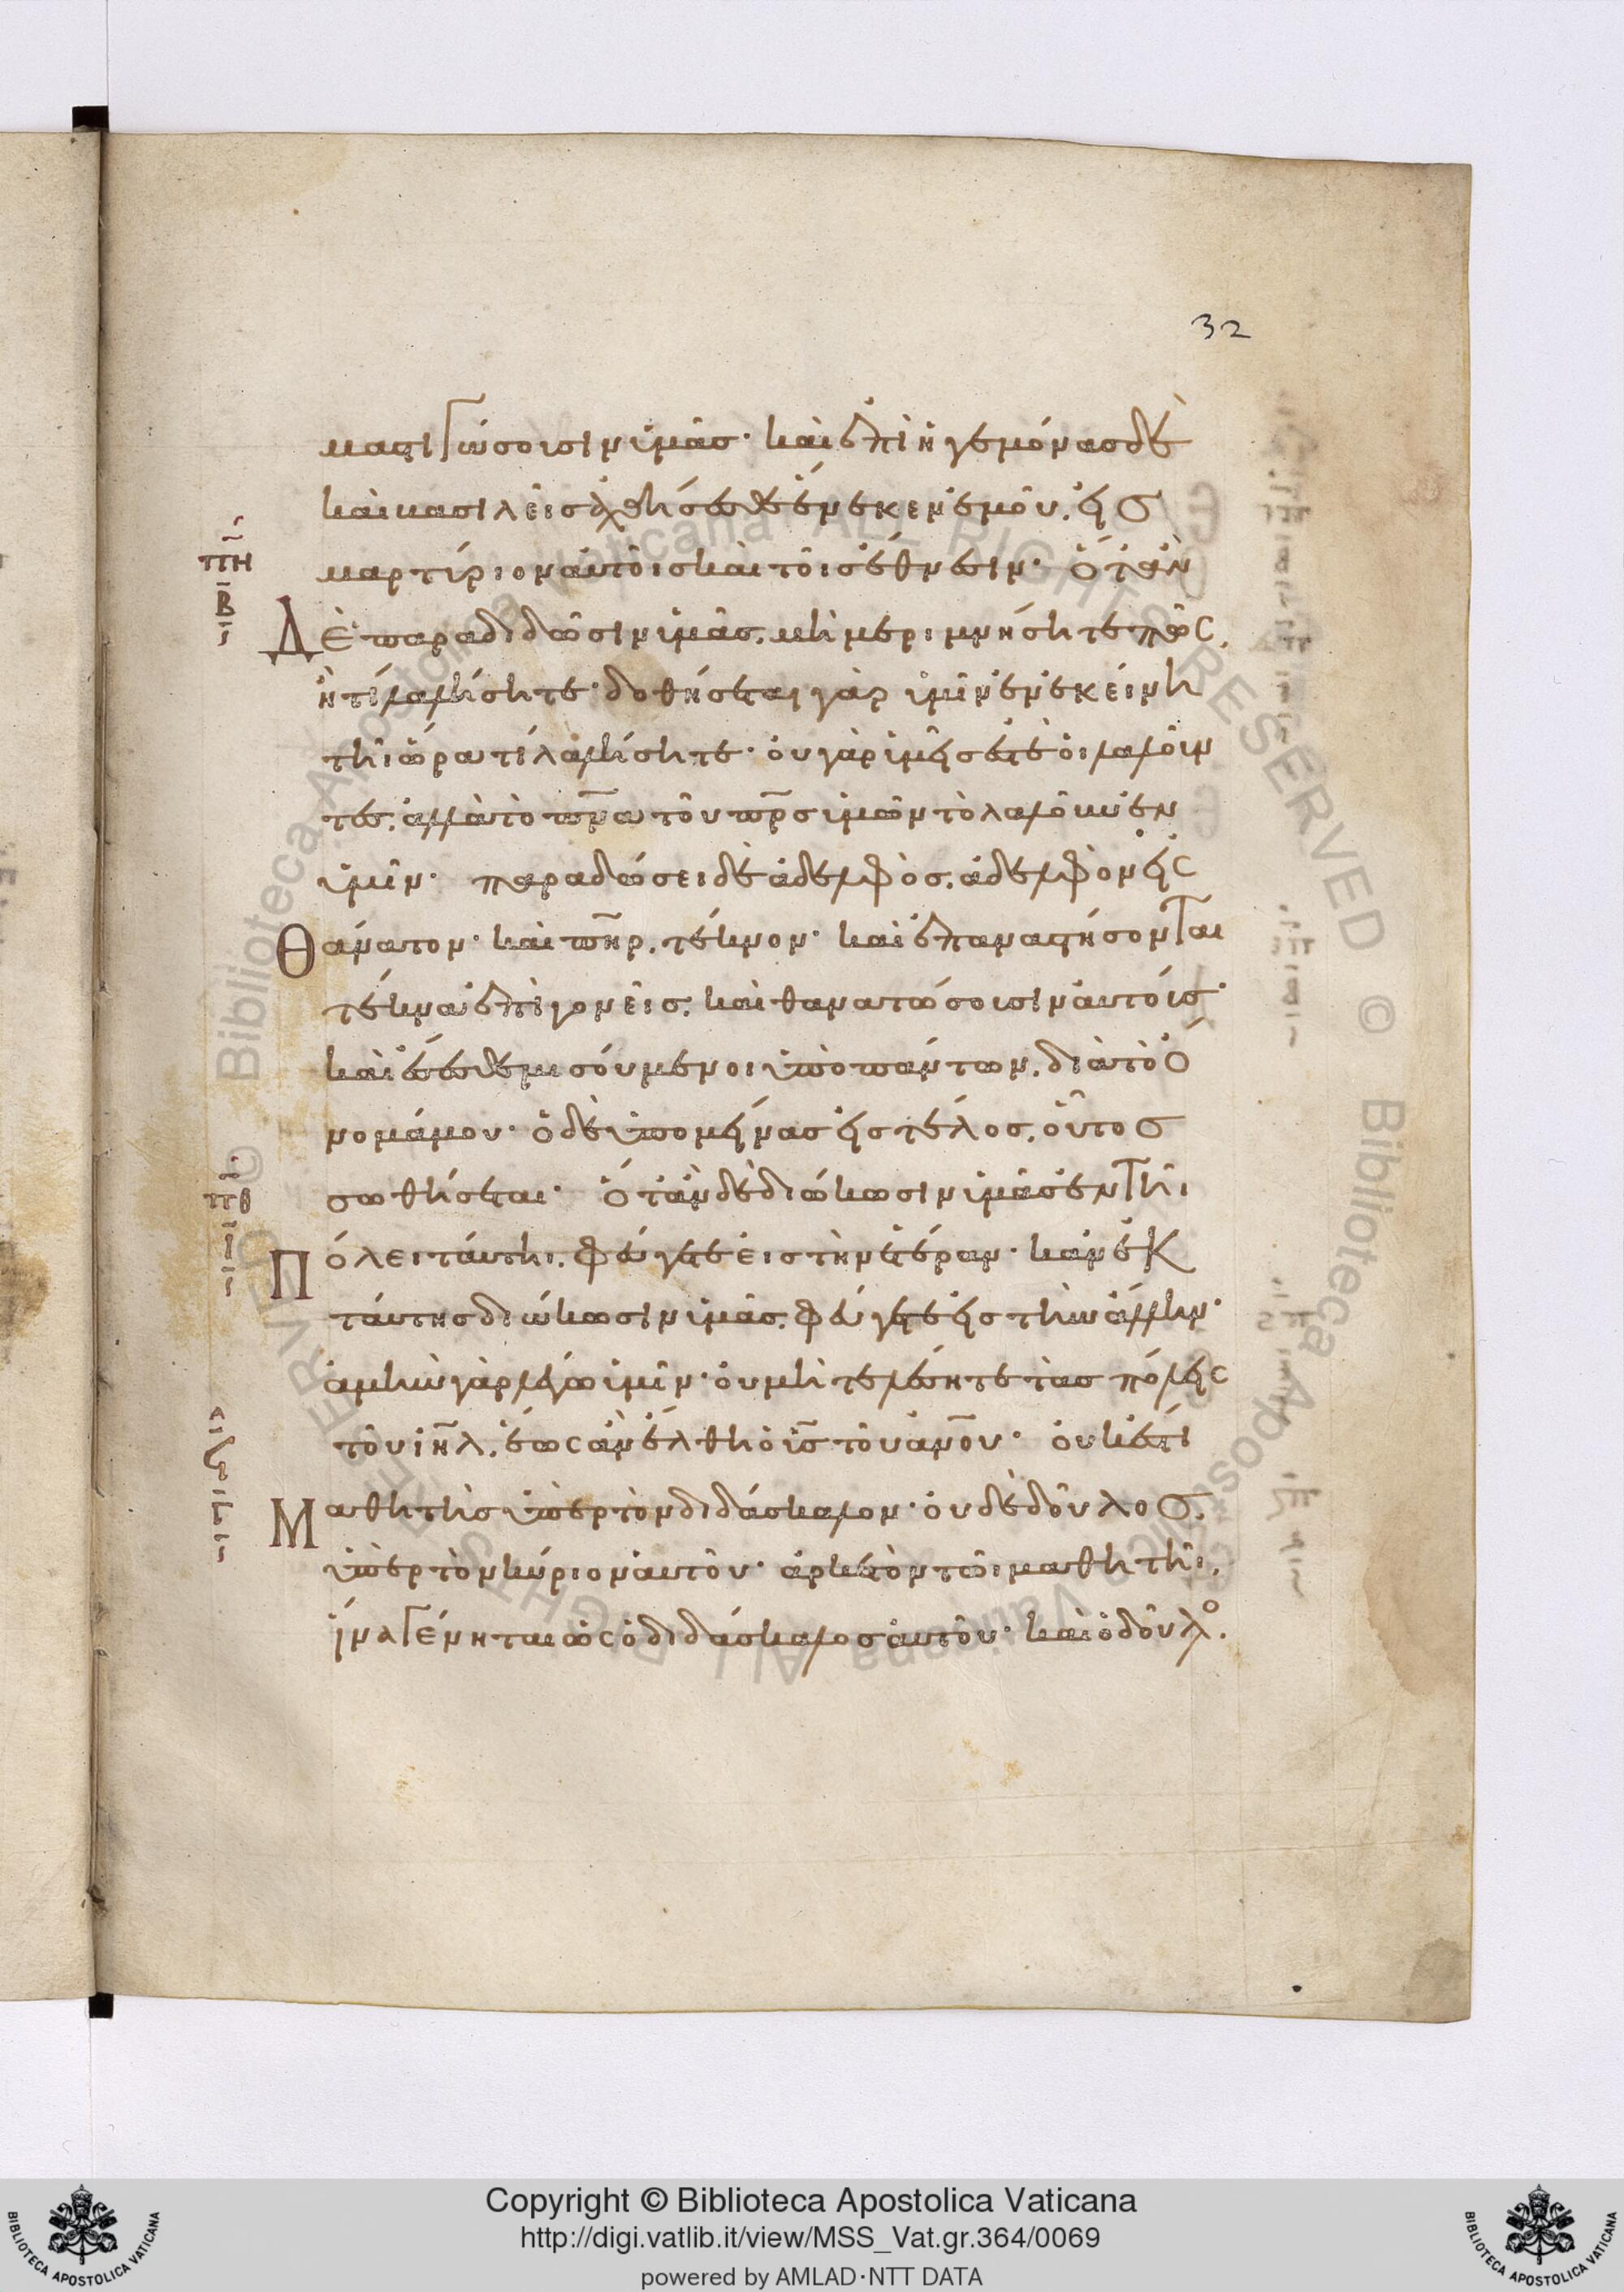 32
μαστιγώσουσιν ὑμᾶς· καὶ ἐπὶ ἡγεμόνας δὲ
καὶ βασιλεῖς ἀχθήσεσθε ἕνεκεν ἐμοῦ. εἰς
μαρτύριον αὐτοῖς καὶ τοῖς ἔθνεσιν· ὅταν
Δὲ παραδιδῶσιν ὑμᾶς. μὴ μεριμνήσητε πῶς.
ἢ τί λαλήσητε· δοθήσεται γὰρ ὑμῖν ἐν ἐκείνη
τῆι ὥρα τί λαλήσητε· οὐ γὰρ ὑμεῖς ἐστὲ οἱ λαλοῦν
τες. ἀλλὰ τὸ πνα τοῦ πρς ὑμῶν τὸ λαλοῦν ἐν
ὑμῖν· παραδώσει δὲ ἀδελφὸς. ἀδελφὸν εἰς
Θάνατον· καὶ πηρ. τέκνον· καὶ ἐπαναστήσονται
τέκνα ἐπὶ γονεῖς. καὶ θανατώσουσιν αὐτούς·
καὶ ἔσεσθε μισούμενοι ὑπὸ πάντων. διὰ τὸ ὄ
νομά μου· ὁ δὲ ὑπομείνας εἰς τέλος. οὗτος
σωθήσεται· ὅταν δὲ διώκωσιν ὑμᾶς ἐν τῆι
Πόλει ταύτηι. φεύγετε εἰς τὴν ἑτέραν· κἂν ἐκ
ταύτης διώκωσιν ὑμᾶς. φεύγετε εἰς τὴν ἄλλην·
ἀμὴν γὰρ λέγω ὑμῖν· οὐ μὴ τελέσητε τὰς πόλεις
τοῦ ιηλ. ἕως ἂν ἔλθη ὁ υς τοῦ ανου· οὐκ ἔστι
Μαθητὴς ὑπὲρ τὸν διδάσκαλον· οὐδὲ δοῦλος.
ὑπὲρ τὸν κύριον αὐτοῦ· ἀρκετὸν τῶι μαθητῆι.
ἵνα γένηται ὡς ὁ διδάσκαλος αὐτοῦ· καὶ ὁ δοῦλο.
πη
β
πθ
ι
Copyright © Biblioteca Apostolica Vaticana
http://digi.vatlib.it/view/MSS_Vat.gr.364/0069
powered by AMLAD·NTT DATA
BIBLIOTECA APOSTOLICA VATICANA
BIBLIOTECA APOSTOLICA VATICANA